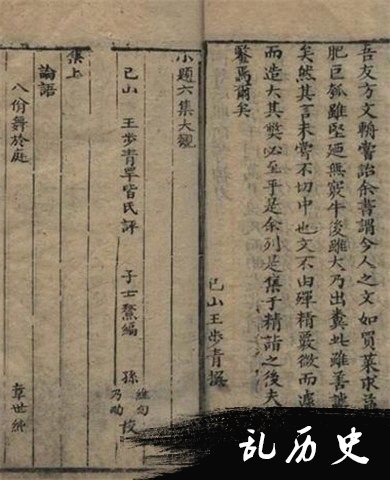 吾友方文輈嘗詒余書謂今人之文如買菜求
肥巨瓠雖堅廼無竅牛後雖大乃出糞此雖善謔
矣然其言未嘗不切中也文不由殫精覈微而遽
而造大其獘必至乎是余列是集于精詣之後夫
鑒焉爾矣
已山王步青撰
小題六集大觀
已山 王步青罕皆氏評 子士鰲編 孫 維甸 乃昀 校
集上
論語
八佾舞於庭 章世純
乱历史